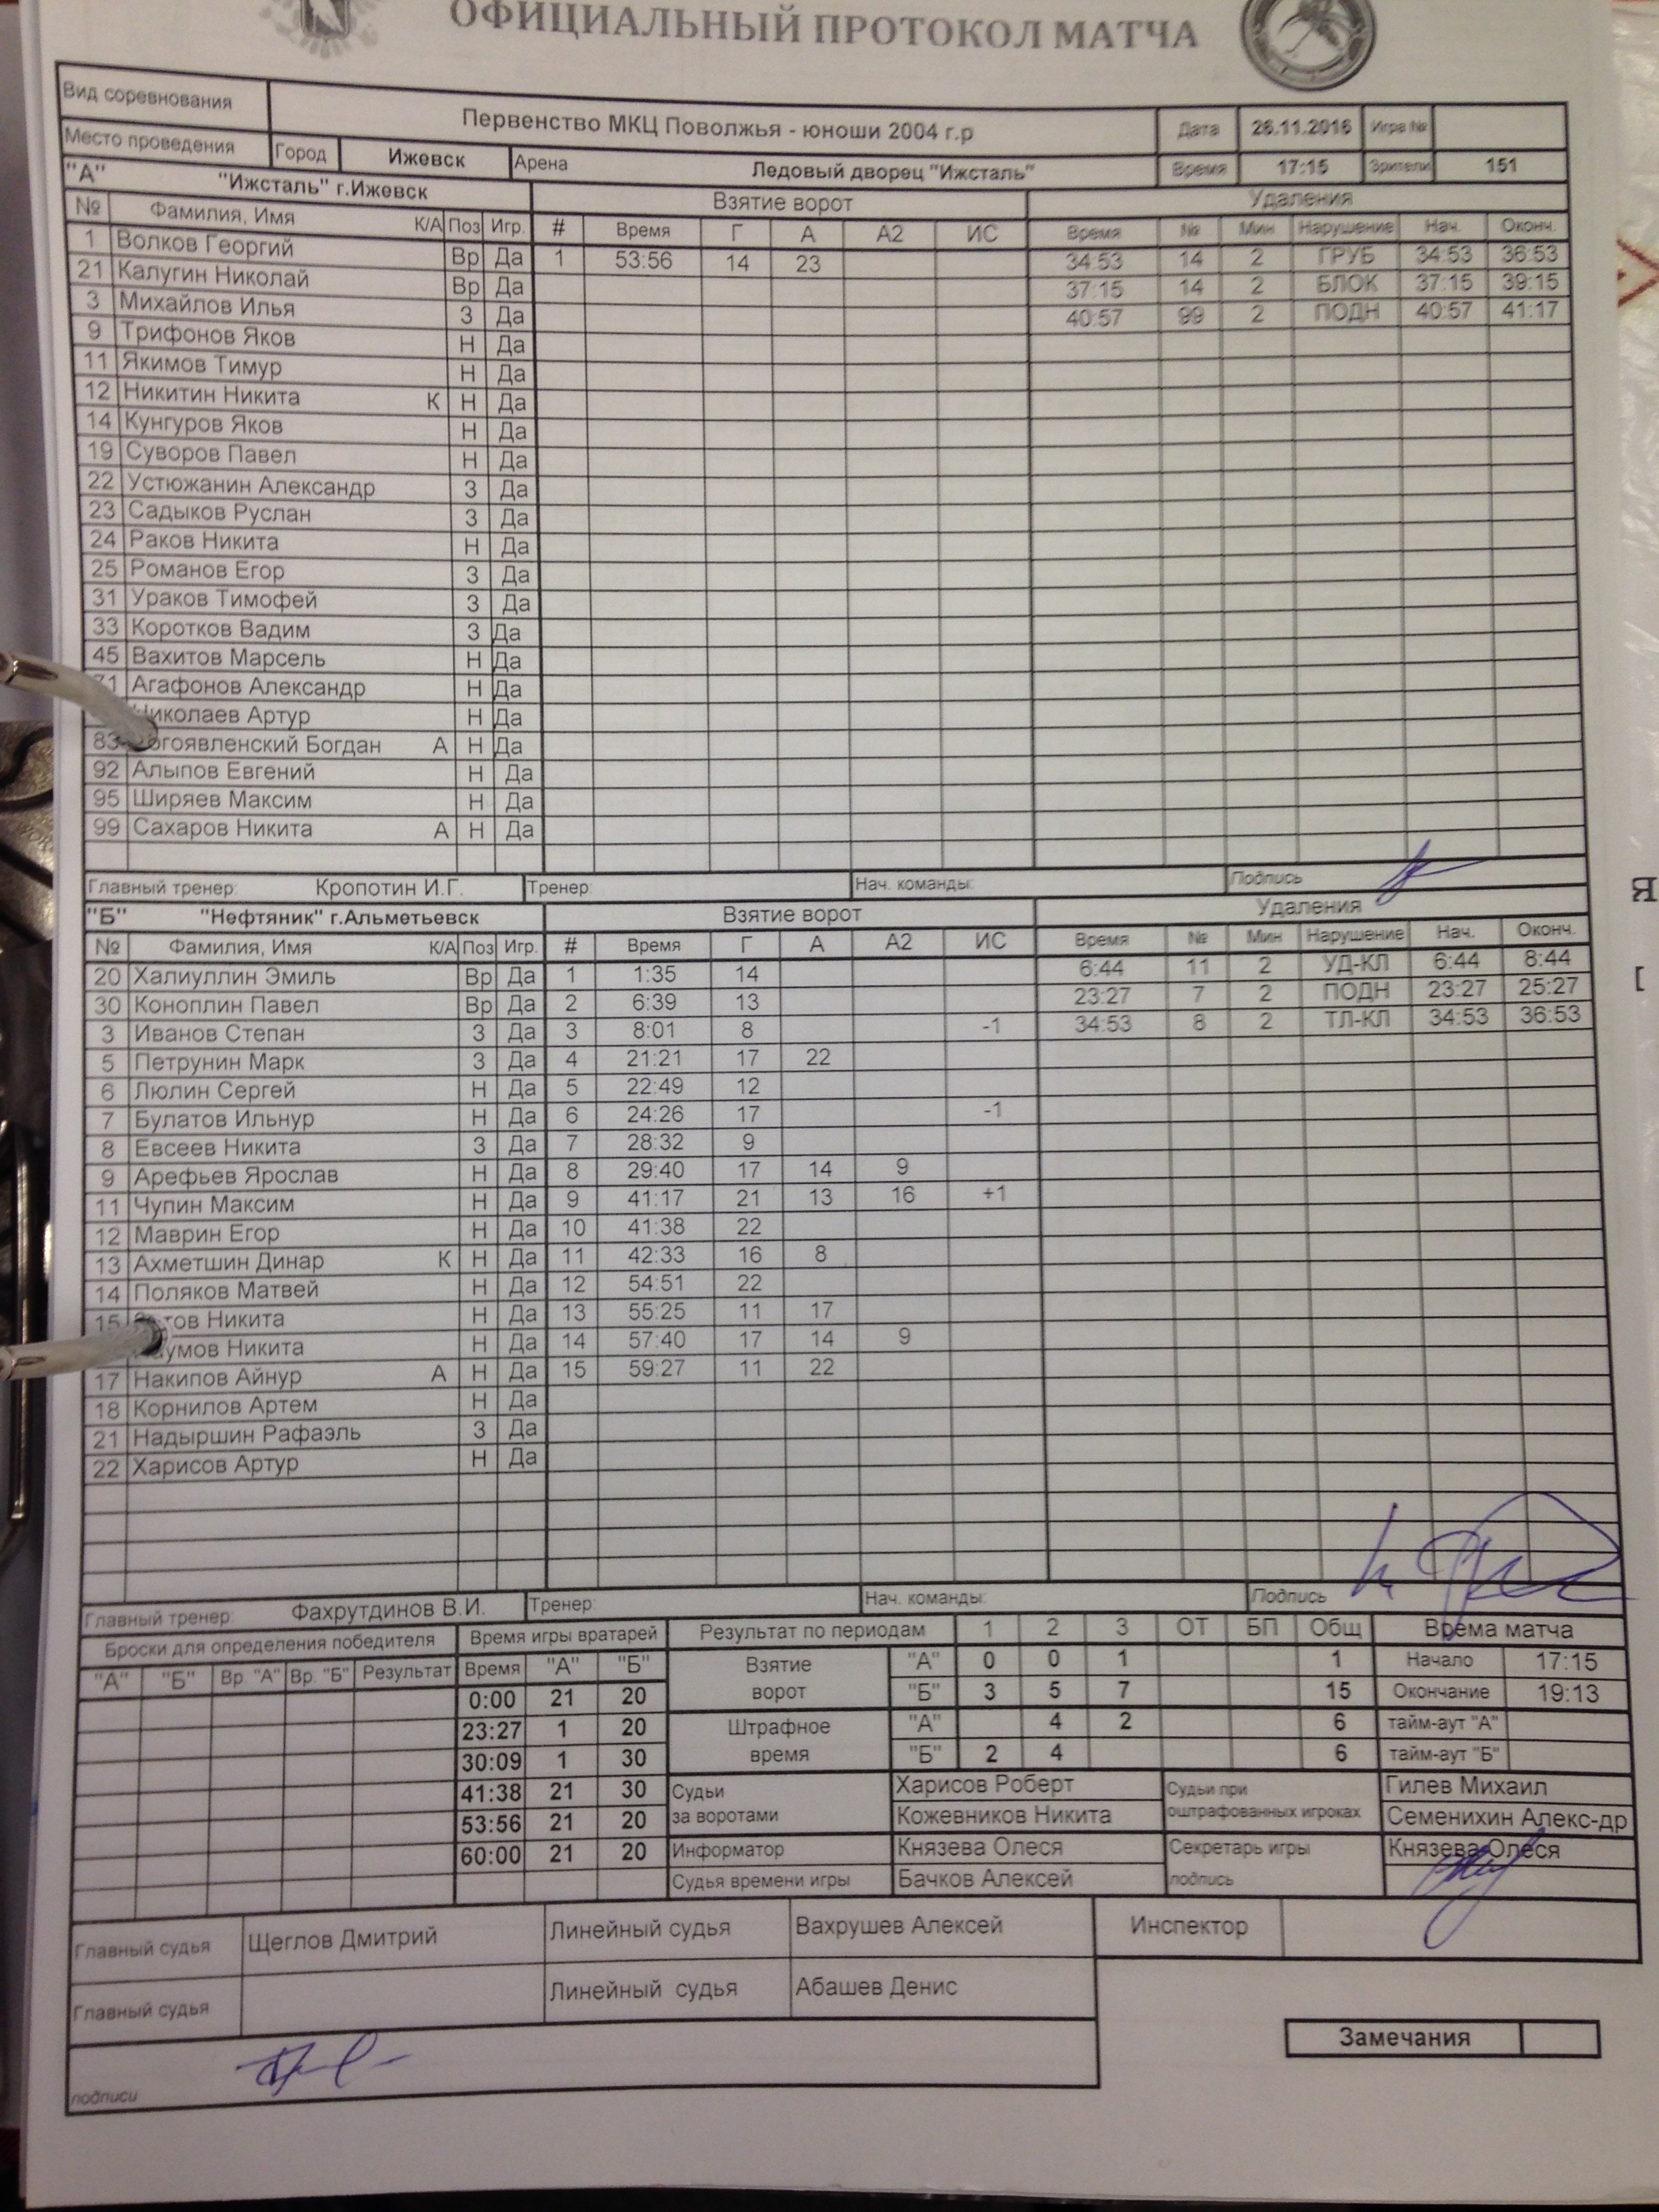 ОФИЦИАЛЬНЫЙ ПРОТОКОЛ МАТЧА
Вид соревнования Первенство МКЦ Поволжья - юноши 2004 г.р Дата 26.11.2016 Игра №
Место проведения Город Ижевск Арена Ледовый дворец "Ижсталь" Время 17:15 Зрители 151
"А" "Ижсталь" г.Ижевск Взятие ворот Удаления
№ Фамилия, Имя К/А Поз Игр. # Время Г А А2 ИС Время № Мин Нарушение Нач. Оконч.
1 Волков Георгий Вр Да 1 53:56 14 23 34:53 14 2 ГРУБ 34:53 36:53
21 Калугин Николай Вр Да 37:15 14 2 БЛОК 37:15 39:15
3 Михайлов Илья З Да 40:57 99 2 ПОДН 40:57 41:17
9 Трифонов Яков Н Да
11 Якимов Тимур Н Да
12 Никитин Никита К Н Да
14 Кунгуров Яков Н Да
19 Суворов Павел Н Да
22 Устюжанин Александр З Да
23 Садыков Руслан З Да
24 Раков Никита Н Да
25 Романов Егор З Да
31 Ураков Тимофей З Да
33 Коротков Вадим З Да
45 Вахитов Марсель Н Да
Агафонов Александр Н Да
Артур Н Да
83 Богдан А Н Да
92 Алыпов Евгений Н Да
95 Ширяев Максим Н Да
99 Сахаров Никита А Н Да
Главный тренер: Кропотин И.Г. Тренер: Нач. команды: Подпись
"Б" "Нефтяник" г.Альметьевск Взятие ворот Удаления
№ Фамилия, Имя К/А Поз Игр. # Время Г А А2 ИС Время № Мин Нарушение Нач. Оконч.
20 Халиуллин Эмиль Вр Да 1 1:35 14 6:44 11 2 УД-КЛ 6:44 8:44
30 Коноплин Павел Вр Да 2 6:39 13 23:27 7 2 ПОДН 23:27 25:27
3 Иванов Степан З Да 3 8:01 8 -1 34:53 8 2 ТЛ-КЛ 34:53 36:53
5 Петрунин Марк З Да 4 21:21 17 22
6 Люлин Сергей Н Да 5 22:49 12
7 Булатов Ильнур Н Да 6 24:26 17 -1
8 Евсеев Никита З Да 7 28:32 9
9 Арефьев Ярослав Н Да 8 29:40 17 14 9
11 Чупин Максим Н Да 9 41:17 21 13 16 +1
12 Маврин Егор Н Да 10 41:38 22
13 Ахметшин Динар К Н Да 11 42:33 16 8
14 Поляков Матвей Н Да 12 54:51 22
15 Никита Н Да 13 55:25 11 17
Никита Н Да 14 57:40 17 14 9
17 Накипов Айнур А Н Да 15 59:27 11 22
18 Корнилов Артем Н Да
21 Надыршин Рафаэль З Да
22 Харисов Артур Н Да
Главный тренер: Фахрутдинов В.И. Тренер: Нач. команды: Подпись
Броски для определения победителя Время игры вратарей Результат по периодам 1 2 3 ОТ БП Общ Время матча
"А" "Б" Вр. "А" Вр. "Б" Результат Время "А" "Б" Взятие ворот "А" 0 0 1 1 Начало 17:15
0:00 21 20 "Б" 3 5 7 15 Окончание 19:13
23:27 1 20 Штрафное время "А" 4 2 6 тайм-аут "А"
30:09 1 30 "Б" 2 4 6 тайм-аут "Б"
41:38 21 30 Судьи за воротами Харисов Роберт Судьи при оштрафованных игроках Гилев Михаил
53:56 21 20 Кожевников Никита Семенихин Алекс-др
60:00 21 20 Информатор Князева Олеся Секретарь игры Князева Олеся
Судья времени игры Бачков Алексей подпись
Главный судья Щеглов Дмитрий Линейный судья Вахрушев Алексей Инспектор
Главный судья Линейный судья Абашев Денис
Замечания
подписи